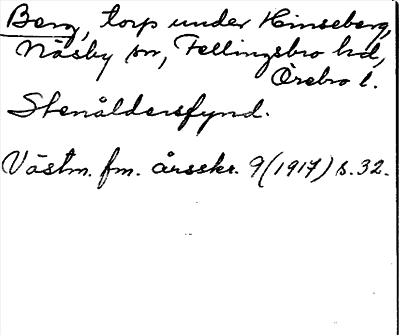 Berg, torp under Hinseberg,
Näsby sn, Fellingsbro hd,
Örebro l.
Stenåldersfynd.
Västm. fm. årsskr. 9 (1917) s. 32.